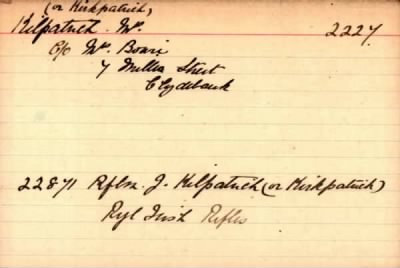 (or Kirkpatrick)
Kilpatrick Mr. 2227
C/o Mr. Bowie
7 Miller Street
Clydebank
22871 Rflm. J. Kilpatrick (or Kirkpatrick)
Ryl Irish Rifles